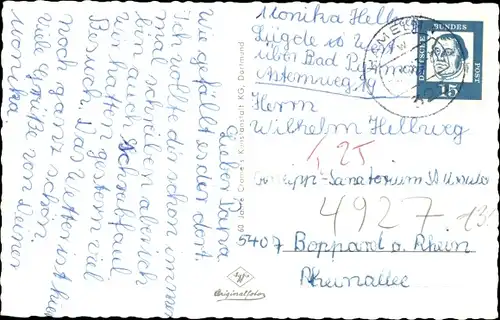 Lieber Papa
wie gefällt es dir dort.
Ich wollte dir schon immer
mal schreiben aber ich
bin auch Schreibfaul
wir hatten gestern viel
Besuch. Das Wetter ist hier
noch ganz schön
viele Grüße von Deiner
Monika
60 Jahre Cramers Kunstanstalt KG, Dortmund
Agfa
Originalfoto
Monika Hellweg
Lügde Westf
über Bad Pyrmont
DEUTSCHE BUNDES POST
15
Herrn
Wilhelm Hellweg
1,25
Kneipp-Sanatorium St. Ursula
4927
13.
5407 Boppard a. Rhein
Rheinallee